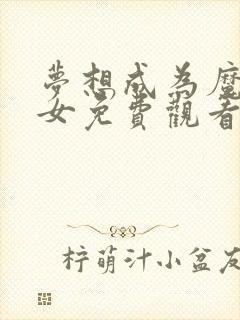 夢想成為魔
女免費觀看
柠萌汁小盆友